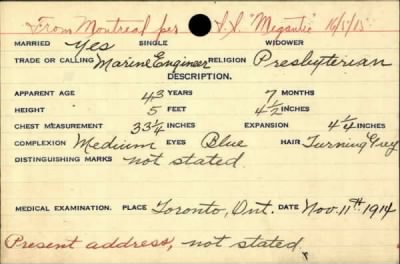 From Montreal per S.S. "Megantic" 16/5/15
MARRIED Yes SINGLE WIDOWER
TRADE OR CALLING Marine Engineer RELIGION Presbyterian
DESCRIPTION.
APPARENT AGE 43 YEARS 7 MONTHS
HEIGHT 5 FEET 4½ INCHES
CHEST MEASUREMENT 33¼ INCHES EXPANSION 4¼ INCHES
COMPLEXION Medium EYES Blue HAIR Turning Grey
DISTINGUISHING MARKS not stated.
MEDICAL EXAMINATION. PLACE Toronto, Ont. DATE Nov. 11th 1914
Present address, not stated.